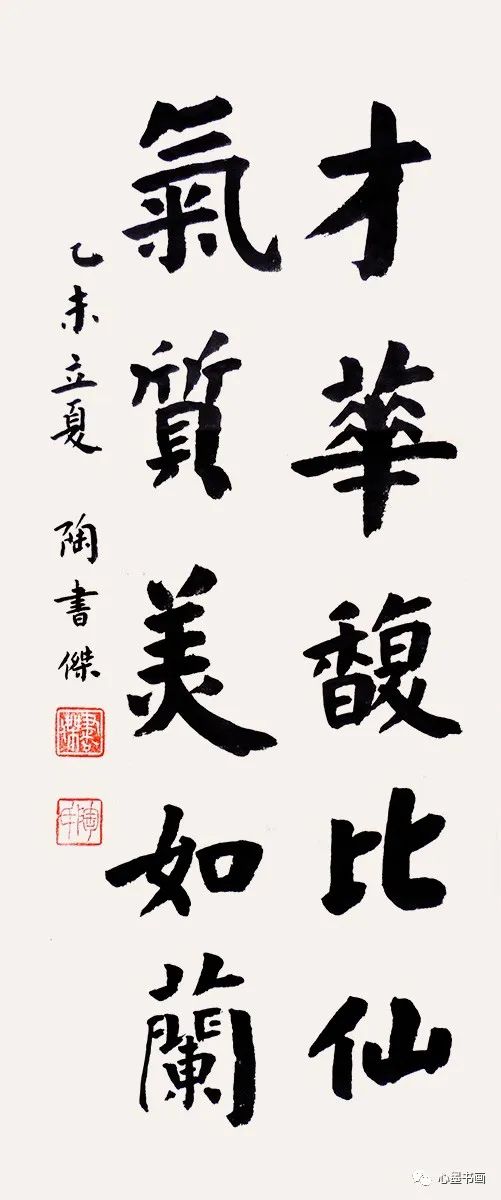 才華馥比仙
氣質美如蘭
乙未立夏 陶書傑
書傑
心墨书画